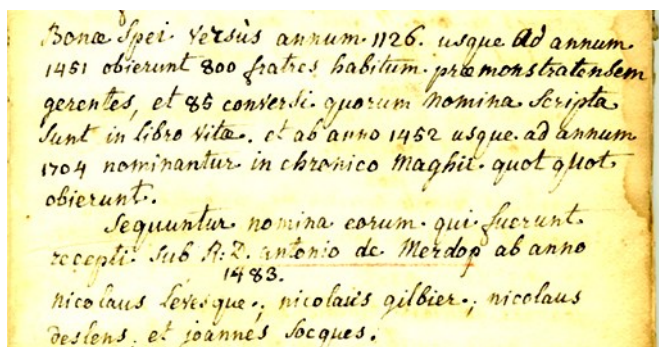 Bonæ Spei versùs annum 1126. usque ad annum
1451 obierunt 800 fratres habitum præmonstratensem
gerentes, et 85 conversi quorum nomina scripta
sunt in libro vitæ. et ab anno 1452 usque ad annum
1704 nominantur in chronico Maghii quot quot
obierunt.
Sequuntur nomina eorum qui fuerunt
recepti sub R: D. antonio de Merdop ab anno
1483.
nicolaus levesque; nicolaüs gilbier; nicolaus
deslens, et joannes socques.